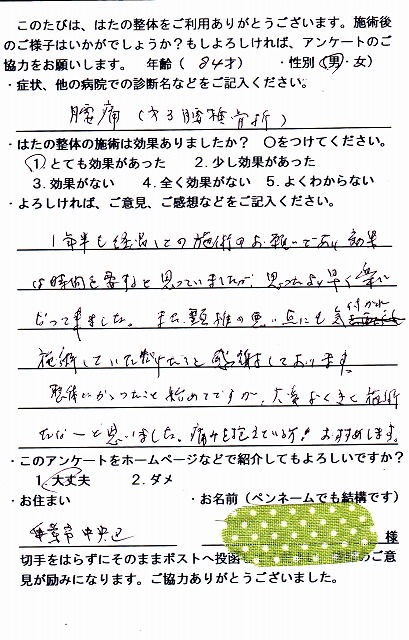 このたびは、はたの整体をご利用ありがとうございます。施術後
のご様子はいかがでしょうか?もしよろしければ、アンケートのご
協力をお願いします。 年齢( 84才) ・性別(男・女)
・症状、他の病院での診断名などをご記入ください。
腰痛(第3腰椎骨折)
・はたの整体の施術は効果ありましたか? 〇をつけてください。
1.とても効果があった 2.少し効果があった
3.効果がない 4.全く効果がない 5.よくわからない
・よろしければ、ご意見、ご感想などをご記入ください。
1年半も経過しての施術のお願いであり 効果
は時間を要すると思っていましたが、思ったより早く楽に
なって来ました。また頚椎の悪い点にも気付かれ
施術していただけたこと感謝しております。
整体にかかったこと始めてですが、大変よくきく施術
だなーと思いました。痛みを抱えている方におすすめします。
・このアンケートをホームページなどで紹介してもよろしいですか?
1.大丈夫 2.ダメ
・お住まい ・お名前(ペンネームでも結構です)
千葉市中央区 様
切手をはらずにそのままポストへ投函 のご意
見が励みになります。ご協力ありがとうございました。